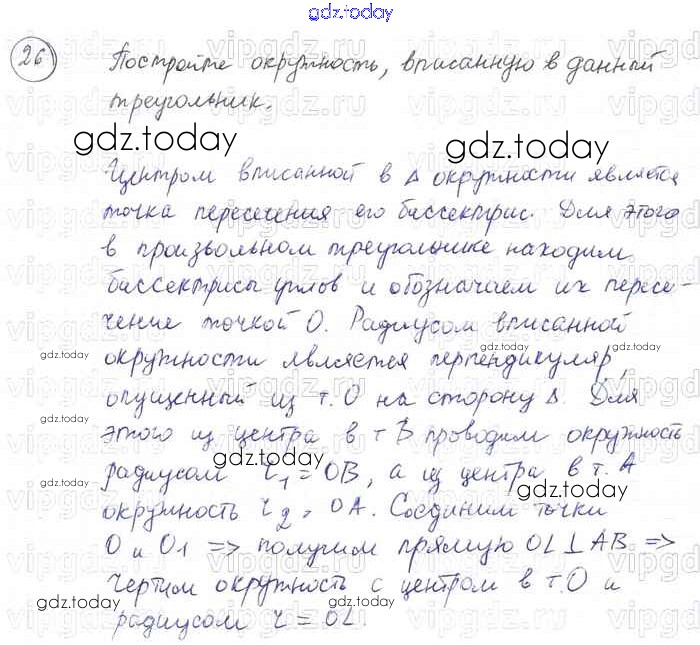 gdz.today
26 Постройте окружность, вписанную в данный
треугольник.
gdz.today gdz.today
Центром вписанной в Δ окружности является
точка пересечения его биссектрис. Для этого
в произвольном треугольнике находим
биссектрисы углов и обозначаем их пересе-
чение точкой O. Радиусом вписанной
gdz.today gdz.today gdz.today
окружности является перпендикуляр,
опущенный из т. O на сторону Δ. Для
gdz.today gdz.today
этого из центра в т B проводим окружность
gdz.today
радиусом r₁ = OB, а из центра в т. A
gdz.today
окружность r₂ = OA. Соединим точки
O и O₁ => получим прямую OL ⊥ AB =>
Чертим окружность с центром в т. O и
gdz.today gdz.today gdz.today
радиусом r = OL.